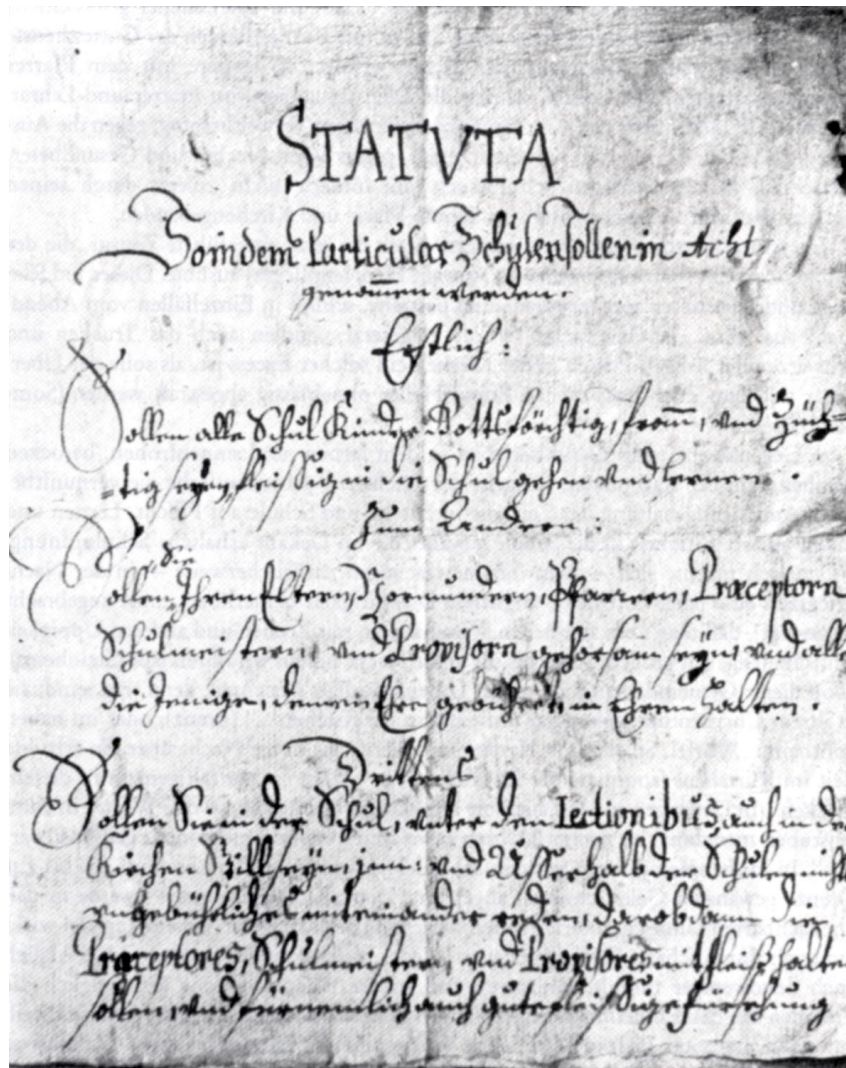 STATVTA
So in dem Particular Schulen sollen in Acht
genom̅en werden.
Erstlich:
Sollen alle Schul Kinder Gottsförchtig, from̅, vnd Züch-
-tig seyn, fleissig in die Schul gehen vnd lernen
Zum Andern:
Sollen Sie Ihren Eltern, Vormündern, Pfarrern, Præceptorn
Schulmeistern, vnd Provisorn gehorsam seyn, vnd alle
die Jenige, denen Ehre gebührt in Ehren halten.
Drittens
Sollen Sie in der Schul, vnter den Lectionibus, auch in der
Kirchen Still seyn, inn- vnd Usserhalb der Schulen nicht
vngebührliches miteinander reden, darob dann die
Præceptores, Schulmeistern, vnd Provisores mit fleiss halte
sollen, vnd fürnemlich auch gute fleissige fürsehung